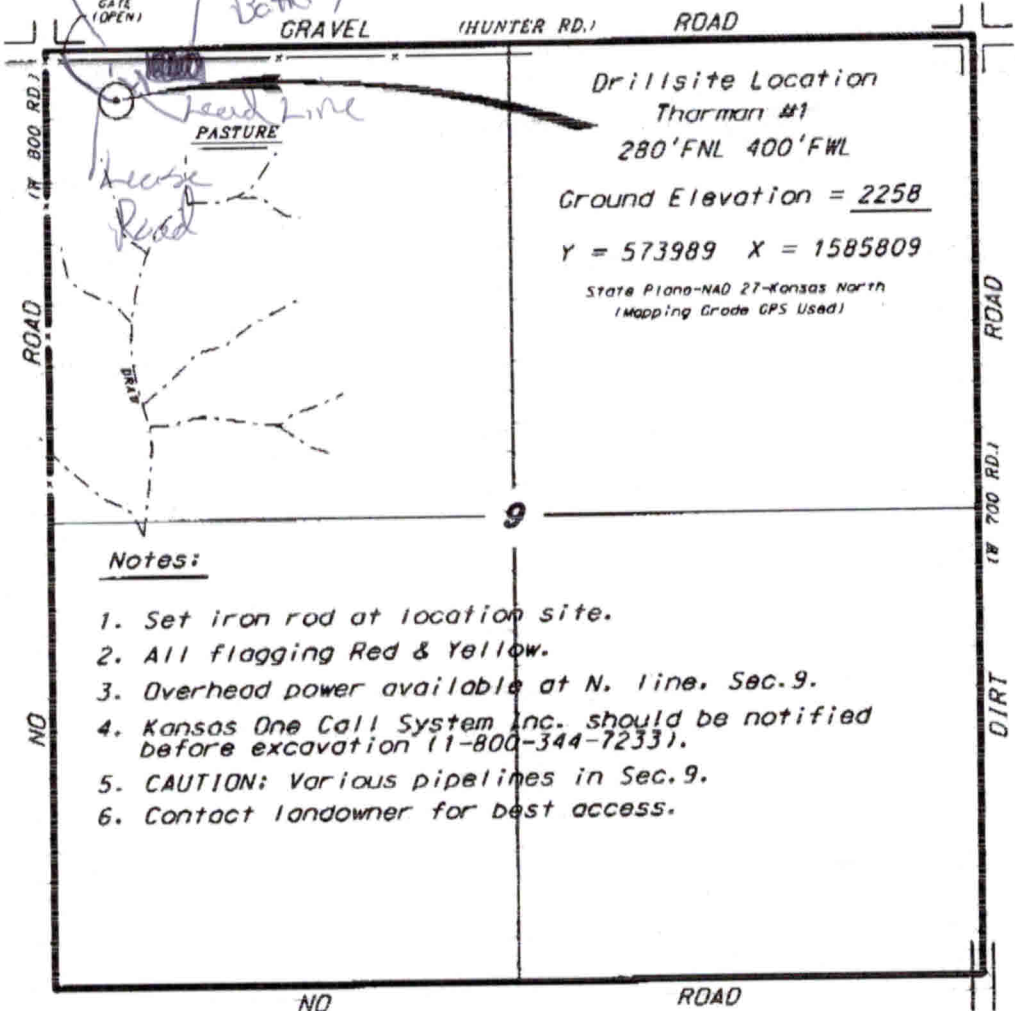 GATE
(OPEN)
Batt
GRAVEL (HUNTER RD.) ROAD
Lead Line
PASTURE
Lease
Road
(W 800 RD.)
NO ROAD
DRAW
Drillsite Location
Tharman #1
280'FNL 400'FWL
Ground Elevation = 2258
Y = 573989 X = 1585809
State Plane-NAD 27-Kansas North
(Mapping Grade GPS Used)
DIRT ROAD
(W 700 RD.)
9
Notes:
1. Set iron rod at location site.
2. All flagging Red & Yellow.
3. Overhead power available at N. line. Sec.9.
4. Kansas One Call System Inc. should be notified
before excavation (1-800-344-7233).
5. CAUTION: Various pipelines in Sec.9.
6. Contact landowner for best access.
NO ROAD